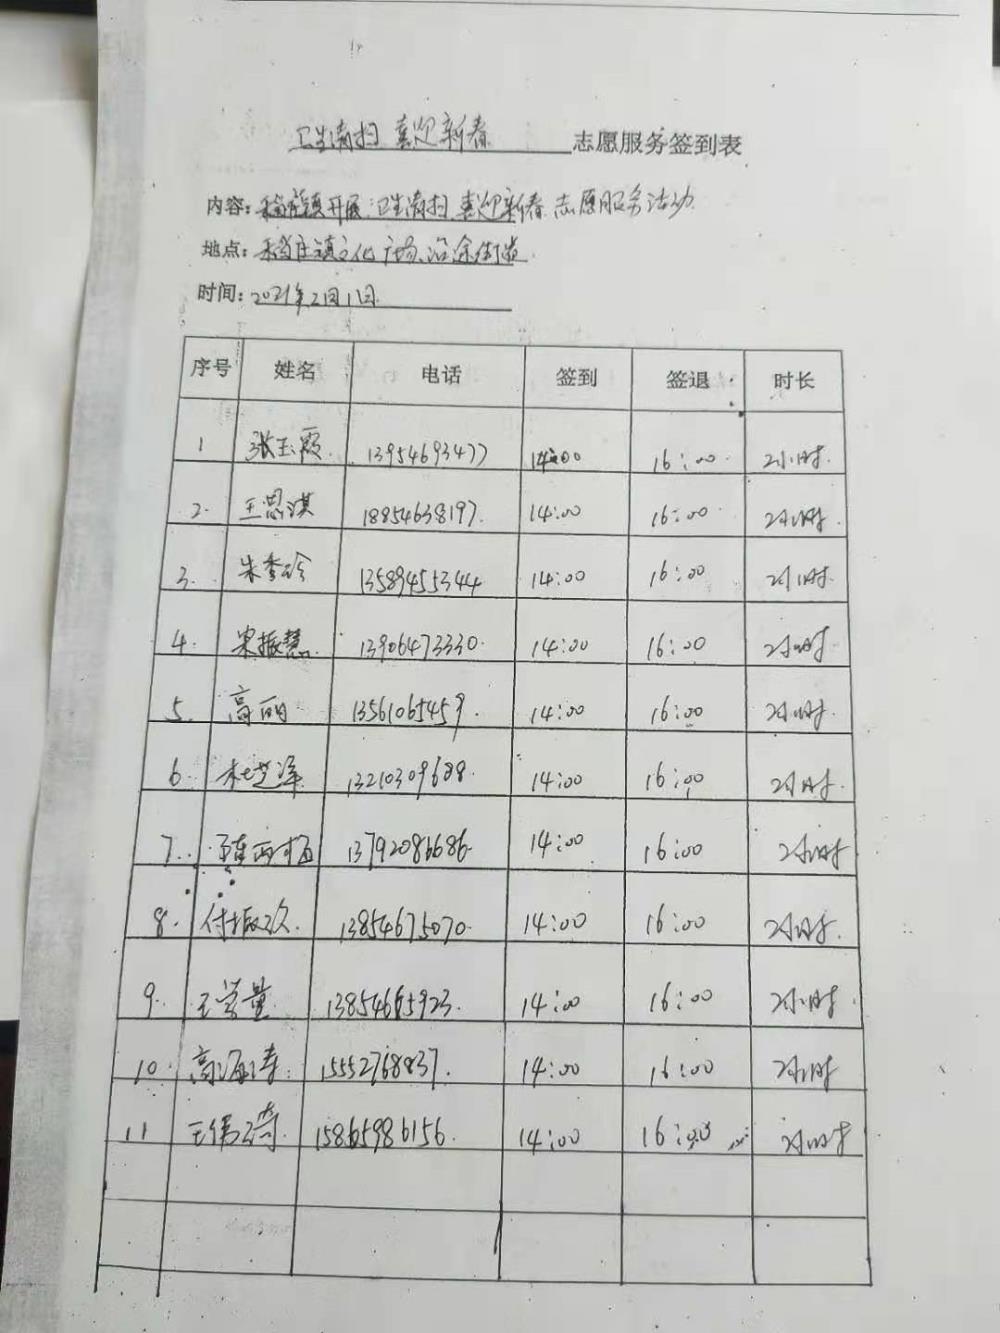 卫生清扫 喜迎新春 志愿服务签到表
内容: 稻庄镇开展"卫生清扫 喜迎新春"志愿服务活动
地点: 稻庄镇文化广场、沿途街道
时间: 2021年2月1日
序号 姓名 电话 签到 签退 时长
1 张玉霞 13954693477 14:00 16:00 2小时
2. 王思淇 18854638197. 14:00 16:00 2小时.
3. 朱秀玲 13589455344 14:00 16:00 2小时.
4. 宋振慧 13906473330. 14:00 16:00 2小时
5. 高丽 13561065459. 14:00 16:00 2小时.
6. 杜芝泽 13210309688. 14:00 16:00 2小时.
7. 13792086686. 14:00 16:00 2小时
8. 付振 13854675070. 14:00 16:00 2小时.
9. 王学量 13854665923. 14:00 16:00 2小时
10. 高海涛. 15552768837. 14:00 16:00 2小时
11 王伟琦. 15865986156. 14:00 16:00 2小时